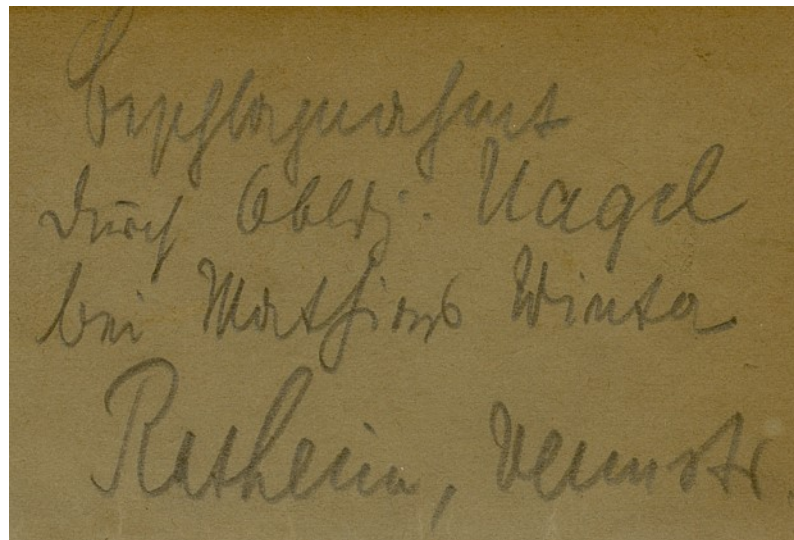 beschlagnahmt
durch Obldj. Nagel
bei Mathias Winter
Ratheim, Vennstr.